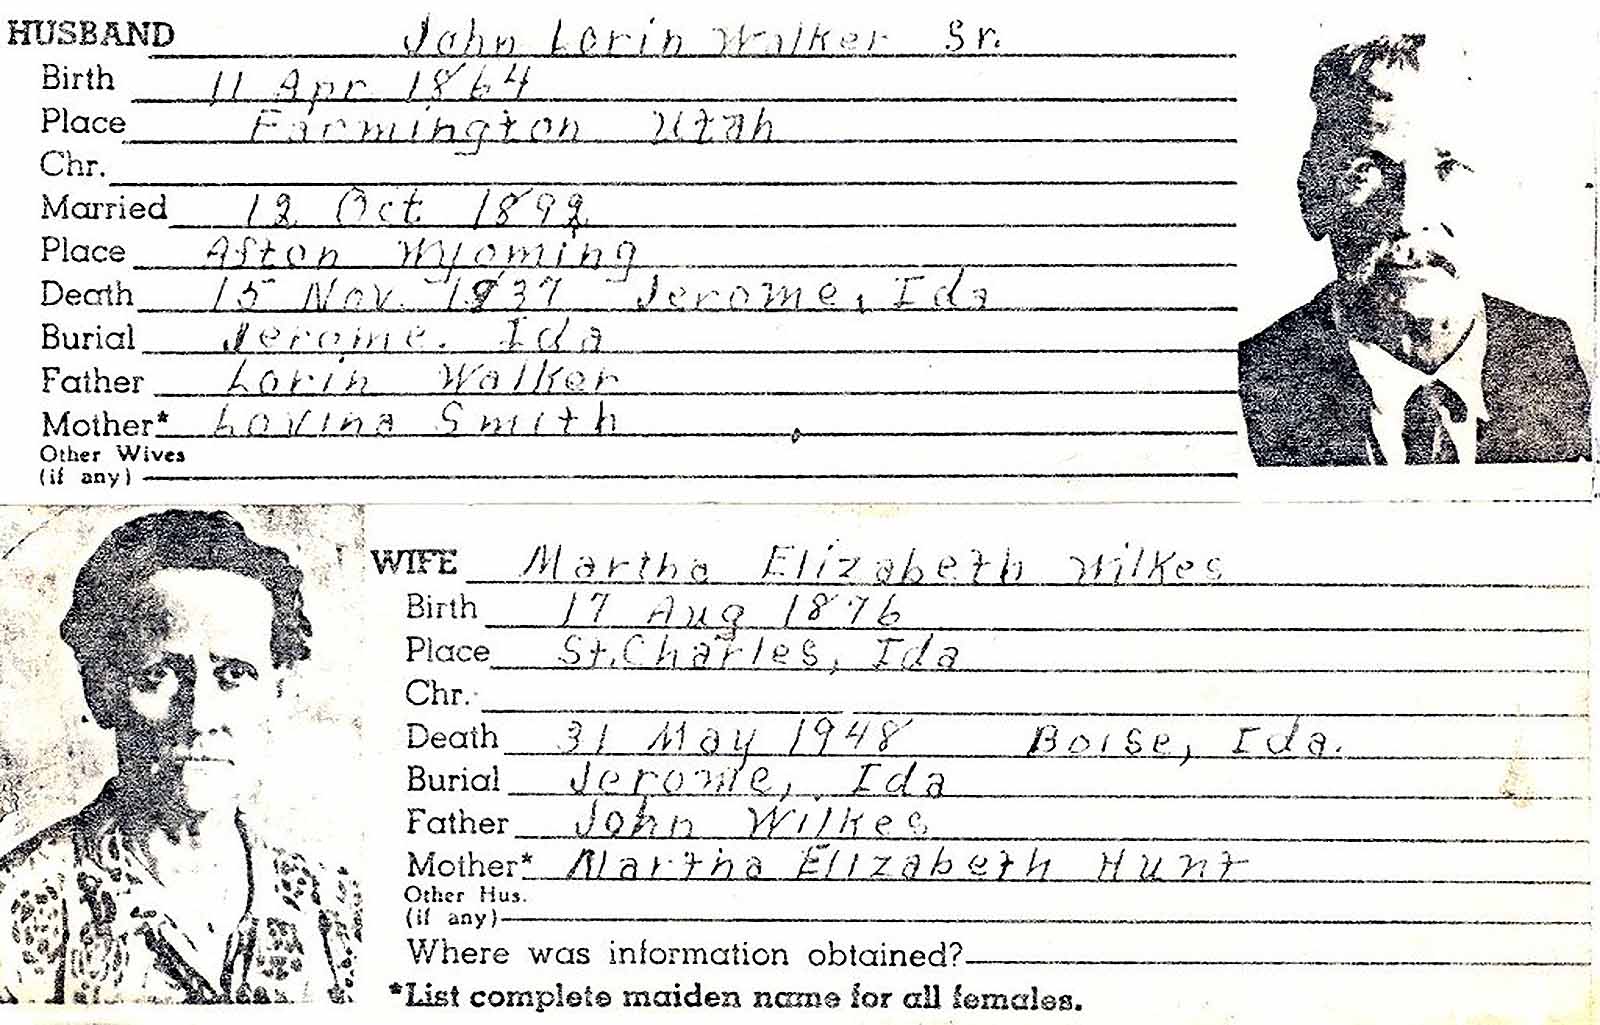 HUSBAND John Lorin Walker Sr.
Birth 11 Apr 1864
Place Farmington Utah
Chr.
Married 12 Oct 1892
Place Afton Wyoming
Death 15 Nov. 1937 Jerome, Ida
Burial Jerome. Ida
Father Lorin Walker
Mother* Lovina Smith
Other Wives
(if any)
WIFE Martha Elizabeth Wilkes
Birth 17 Aug 1876
Place St. Charles, Ida
Chr.
Death 31 May 1948 Boise, Ida.
Burial Jerome, Ida
Father John Wilkes
Mother* Martha Elizabeth Hunt
Other Hus.
(if any)
Where was information obtained?
*List complete maiden name for all females.